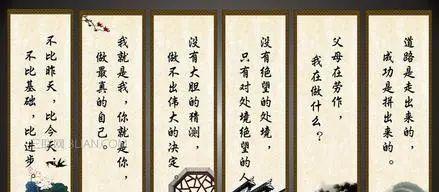 道路是走出来的，
成功是拼出来的。
父母在劳作，
我在做什么？
没有绝望的处境，
只有对处境绝望的人
没有大胆的猜测，
做不出伟大的决定
我就是我，你就是你，
做最真的自己。
不比昨天，比今
不比基础，比进步。
三联网 3LIAN.COM